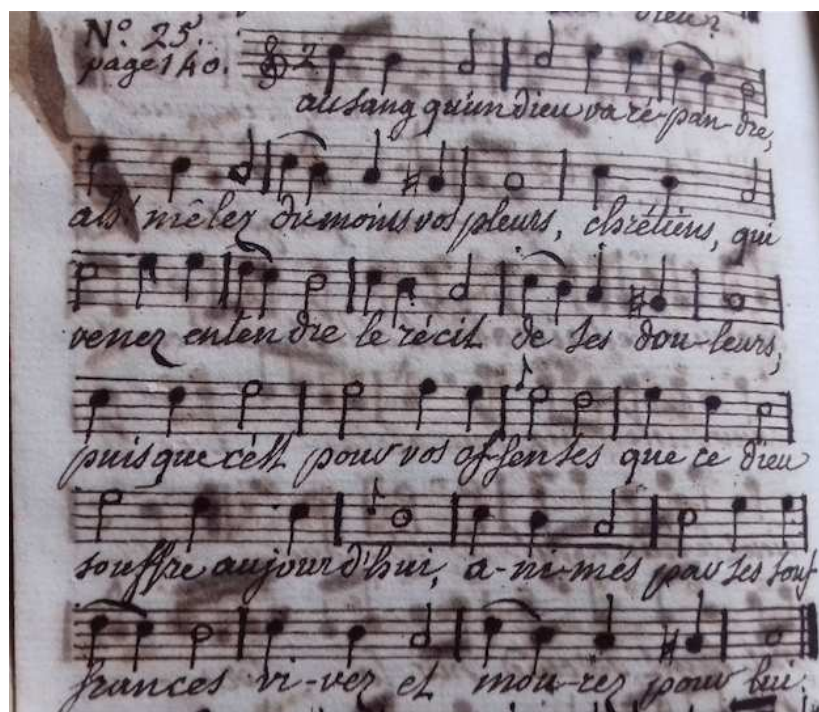 Dieu?
N.º 25.
page 140. 2
au sang qu'un dieu va ré-pan-dre,
ah! mêlez du moins vos pleurs, chrétiens, qui
venez entendre le récit de ses dou-leurs,
puisque c'est pour vos offenses que ce dieu
souffre aujourd'hui, a-ni-més par ses souf
frances vi-vez et mou-rez pour lui.